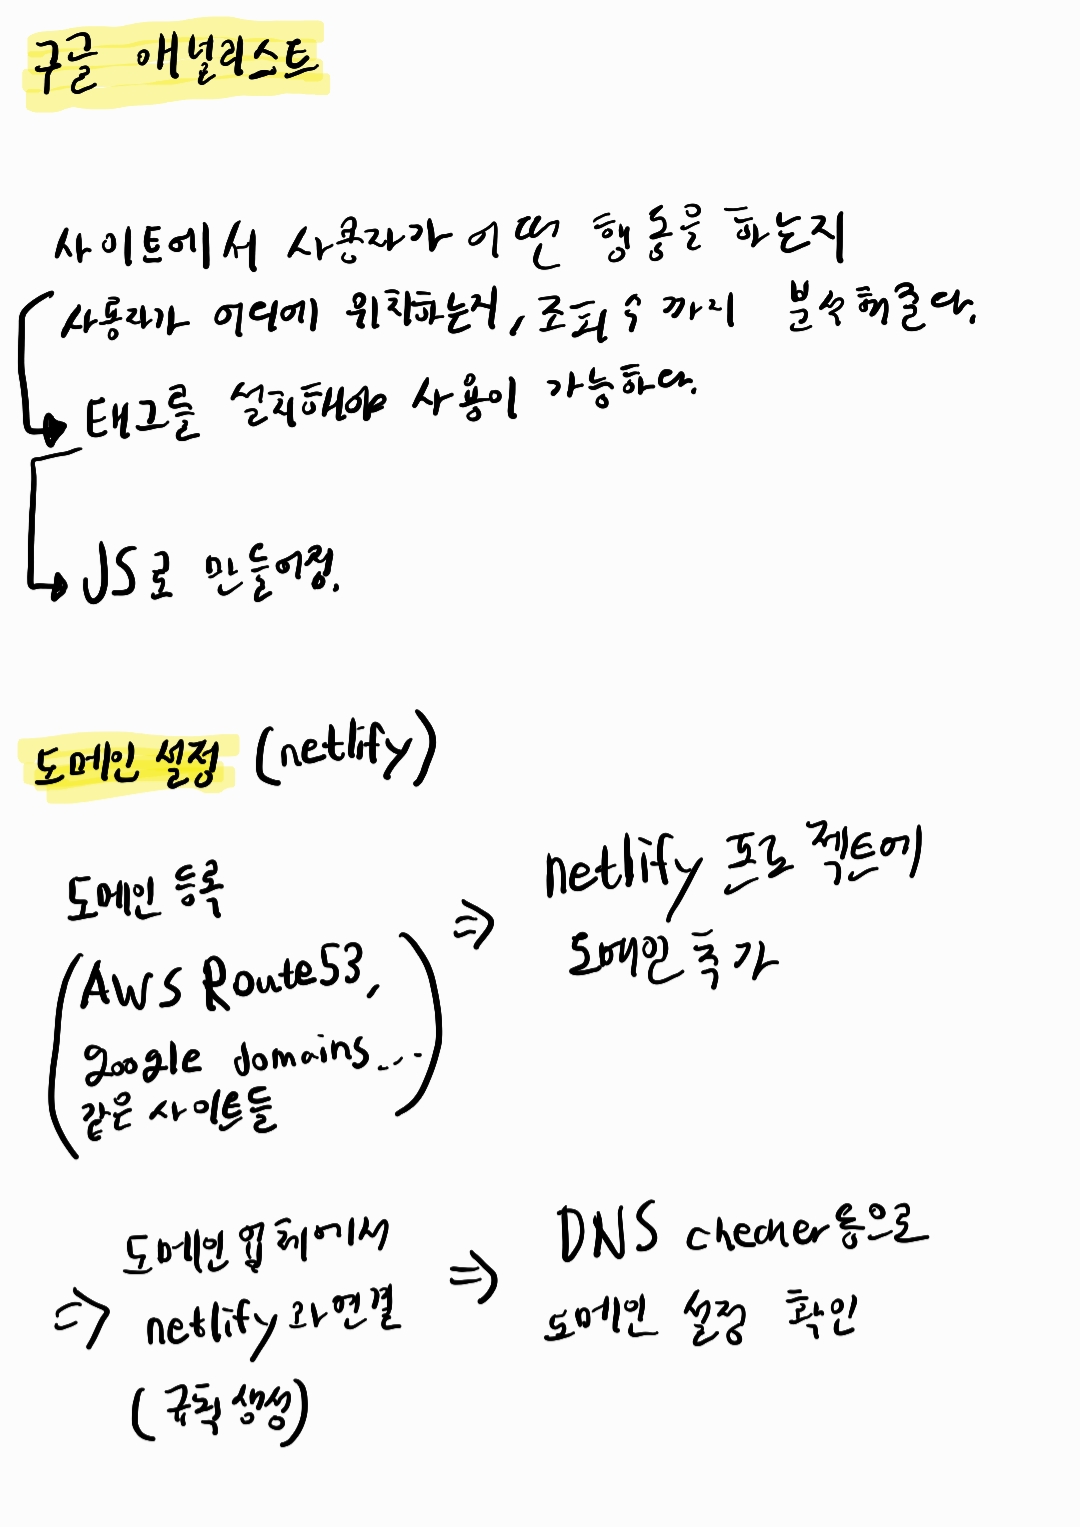 구글 애널리스트
사이트에서 사용자가 어떤 행동을 하는지
사용자가 어디에 위치하는지, 조회수까지 분석해준다.
태그를 설치해야 사용이 가능하다.
JS로 만들어짐.
도메인 설정 (netlify)
도메인 등록
(AWS Route53,
google domains...
같은 사이트들)
⇒ netlify 프로젝트에
도메인 추가
⇒ 도메인 업체에서
netlify과 연결
(규칙 생성)
⇒ DNS checker등으로
도메인 설정 확인